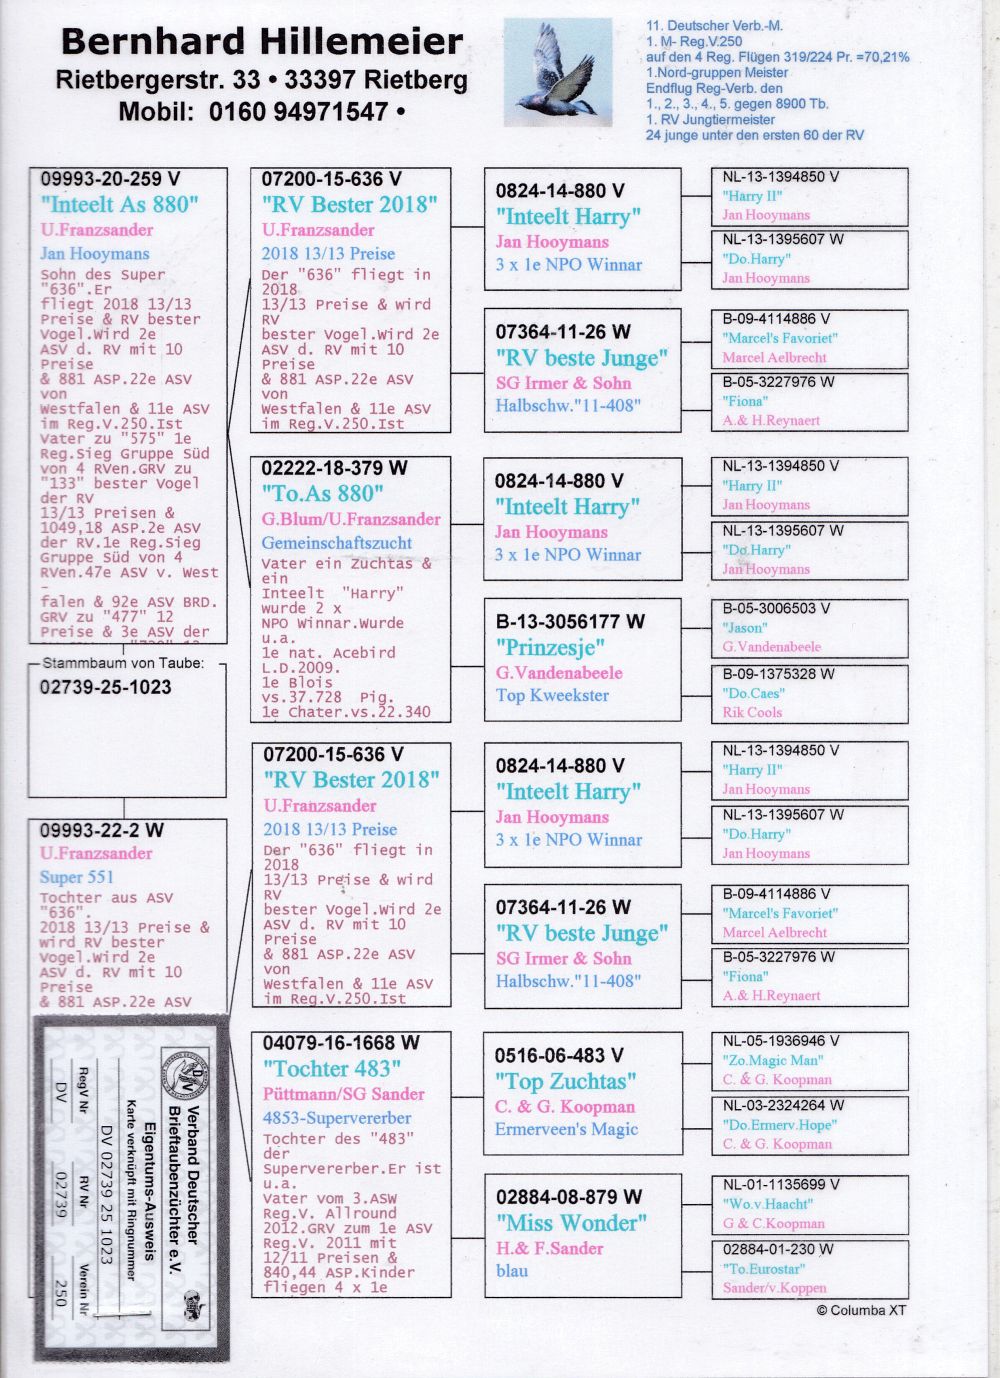 Bernhard Hillemeier
Rietbergerstr. 33 • 33397 Rietberg
Mobil: 0160 94971547 •
11. Deutscher Verb.-M.
1. M- Reg.V.250
auf den 4 Reg. Flügen 319/224 Pr. =70,21%
1.Nord-gruppen Meister
Endflug Reg-Verb. den
1., 2., 3., 4., 5. gegen 8900 Tb.
1. RV Jungtiermeister
24 junge unter den ersten 60 der RV
09993-20-259 V
"Inteelt As 880"
U.Franzsander
Jan Hooymans
Sohn des Super
"636".Er
fliegt 2018 13/13
Preise & RV bester
Vogel.Wird 2e
ASV d. RV mit 10
Preise
& 881 ASP.22e ASV
von
Westfalen & 11e ASV
im Reg.V.250.Ist
Vater zu "575" 1e
Reg.Sieg Gruppe Süd
von 4 RVen.GRV zu
"133" bester Vogel
der RV
13/13 Preisen &
1049,18 ASP.2e ASV
der RV.1e Reg.Sieg
Gruppe Süd von 4
RVen.47e ASV v. West
-
falen & 92e ASV BRD.
GRV zu "477" 12
Preise & 3e ASV der
Stammbaum von Taube:
02739-25-1023
09993-22-2 W
U.Franzsander
Super 551
Tochter aus ASV
"636".
2018 13/13 Preise &
wird RV bester
Vogel.Wird 2e
ASV d. RV mit 10
Preise
& 881 ASP.22e ASV
Verband Deutscher
Brieftaubenzüchter e.V.
Eigentums-Ausweis
Karte verknüpft mit Ringnummer
DV 02739 25 1023
RegV Nr
RV Nr
Verein Nr
DV
02739
250
07200-15-636 V
"RV Bester 2018"
U.Franzsander
2018 13/13 Preise
Der "636" fliegt in
2018
13/13 Preise & wird
RV
bester Vogel.Wird 2e
ASV d. RV mit 10
Preise
& 881 ASP.22e ASV
von
Westfalen & 11e ASV
im Reg.V.250.Ist
02222-18-379 W
"To.As 880"
G.Blum/U.Franzsander
Gemeinschaftszucht
Vater ein Zuchtas &
ein
Inteelt "Harry"
wurde 2 x
NPO Winnar.Wurde
u.a.
1e nat. Acebird
L.D.2009.
1e Blois
vs.37.728 Pig.
1e Chater.vs.22.340
07200-15-636 V
"RV Bester 2018"
U.Franzsander
2018 13/13 Preise
Der "636" fliegt in
2018
13/13 Preise & wird
RV
bester Vogel.Wird 2e
ASV d. RV mit 10
Preise
& 881 ASP.22e ASV
von
Westfalen & 11e ASV
im Reg.V.250.Ist
04079-16-1668 W
"Tochter 483"
Püttmann/SG Sander
4853-Supervererber
Tochter des "483"
der
Supervererber.Er ist
u.a.
Vater vom 3.ASW
Reg.V. Allround
2012.GRV zum 1e ASV
Reg.V. 2011 mit
12/11 Preisen &
840,44 ASP.Kinder
fliegen 4 x 1e
0824-14-880 V
"Inteelt Harry"
Jan Hooymans
3 x 1e NPO Winnar
07364-11-26 W
"RV beste Junge"
SG Irmer & Sohn
Halbschw."11-408"
0824-14-880 V
"Inteelt Harry"
Jan Hooymans
3 x 1e NPO Winnar
B-13-3056177 W
"Prinzesje"
G.Vandenabeele
Top Kweekster
0824-14-880 V
"Inteelt Harry"
Jan Hooymans
3 x 1e NPO Winnar
07364-11-26 W
"RV beste Junge"
SG Irmer & Sohn
Halbschw."11-408"
0516-06-483 V
"Top Zuchtas"
C. & G. Koopman
Ermerveen's Magic
02884-08-879 W
"Miss Wonder"
H.& F.Sander
blau
NL-13-1394850 V
"Harry II"
Jan Hooymans
NL-13-1395607 W
"Do.Harry"
Jan Hooymans
B-09-4114886 V
"Marcel's Favoriet"
Marcel Aelbrecht
B-05-3227976 W
"Fiona"
A.& H.Reynaert
NL-13-1394850 V
"Harry II"
Jan Hooymans
NL-13-1395607 W
"Do.Harry"
Jan Hooymans
B-05-3006503 V
"Jason"
G.Vandenabeele
B-09-1375328 W
"Do.Caes"
Rik Cools
NL-13-1394850 V
"Harry II"
Jan Hooymans
NL-13-1395607 W
"Do.Harry"
Jan Hooymans
B-09-4114886 V
"Marcel's Favoriet"
Marcel Aelbrecht
B-05-3227976 W
"Fiona"
A.& H.Reynaert
NL-05-1936946 V
"Zo.Magic Man"
C. & G. Koopman
NL-03-2324264 W
"Do.Ermerv.Hope"
C. & G. Koopman
NL-01-1135699 V
"Wo.v.Haacht"
G & C.Koopman
02884-01-230 W
"To.Eurostar"
Sander/v.Koppen
© Columba XT